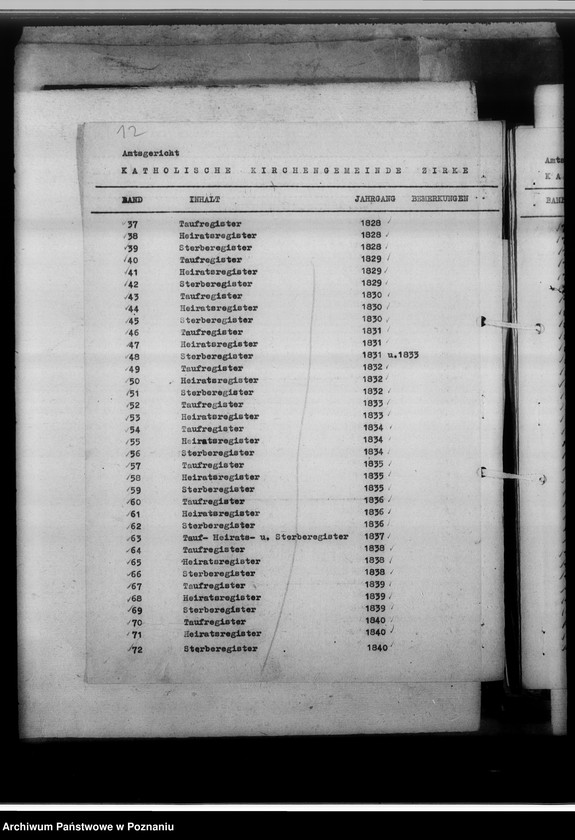 12
Amtsgericht
KATHOLISCHE KIRCHENGEMEINDE ZIRKE
BAND INHALT JAHRGANG BEMERKUNGEN
37 Taufregister 1828
38 Heiratsregister 1828
39 Sterberegister 1828
40 Taufregister 1829
41 Heiratsregister 1829
42 Sterberegister 1829
43 Taufregister 1830
44 Heiratsregister 1830
45 Sterberegister 1830
46 Taufregister 1831
47 Heiratsregister 1831
48 Sterberegister 1831 u.1833
49 Taufregister 1832
50 Heiratsregister 1832
51 Sterberegister 1832
52 Taufregister 1833
53 Heiratsregister 1833
54 Taufregister 1834
55 Heiratsregister 1834
56 Sterberegister 1834
57 Taufregister 1835
58 Heiratsregister 1835
59 Sterberegister 1835
60 Taufregister 1836
61 Heiratsregister 1836
62 Sterberegister 1836
63 Tauf- Heirats- u. Sterberegister 1837
64 Taufregister 1838
65 Heiratsregister 1838
66 Sterberegister 1838
67 Taufregister 1839
68 Heiratsregister 1839
69 Sterberegister 1839
70 Taufregister 1840
71 Heiratsregister 1840
72 Sterberegister 1840
Archiwum Państwowe w Poznaniu